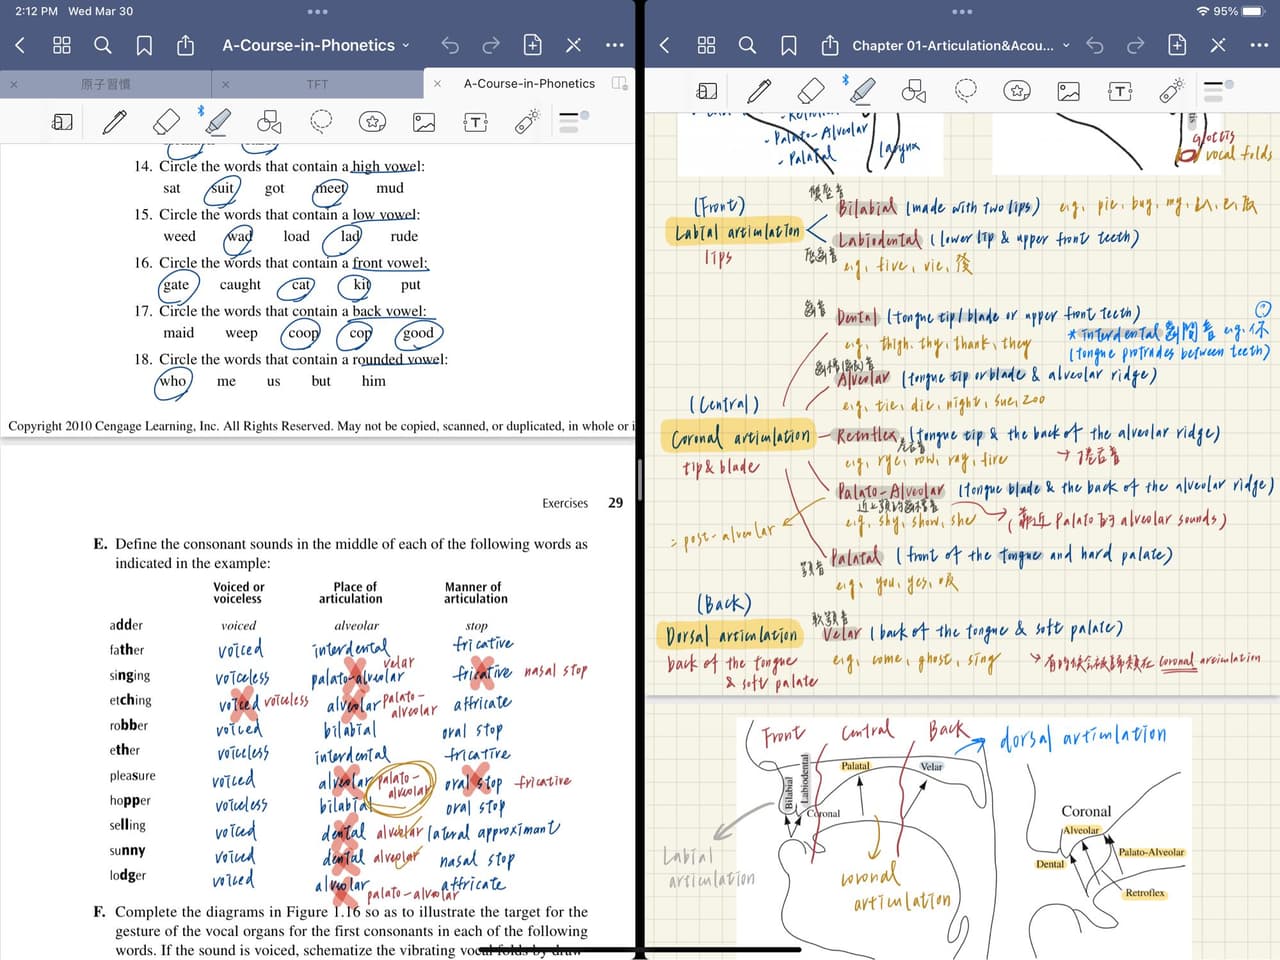 2:12 PM Wed Mar 30
95%
A-Course-in-Phonetics
Chapter 01-Articulation&Acou...
原子習慣
TFT
A-Course-in-Phonetics
14. Circle the words that contain a high vowel:
sat suit got meet mud
15. Circle the words that contain a low vowel:
weed wad load lad rude
16. Circle the words that contain a front vowel:
gate caught cat kit put
17. Circle the words that contain a back vowel:
maid weep coop cop good
18. Circle the words that contain a rounded vowel:
who me us but him
Copyright 2010 Cengage Learning, Inc. All Rights Reserved. May not be copied, scanned, or duplicated, in whole or i
Exercises 29
E. Define the consonant sounds in the middle of each of the following words as
indicated in the example:
Voiced or voiceless
Place of articulation
Manner of articulation
adder voiced alveolar stop
father voiced interdental fricative
singing voiceless palato-alveolar velar fricative nasal stop
etching voiced voiceless alveolar palato-alveolar affricate
robber voiced bilabial oral stop
ether voiceless interdental fricative
pleasure voiced alveolar palato-alveolar oral stop fricative
hopper voiceless bilabial oral stop
selling voiced dental alveolar lateral approximant
sunny voiced dental alveolar nasal stop
lodger voiced alveolar palato-alveolar affricate
F. Complete the diagrams in Figure 1.16 so as to illustrate the target for the
gesture of the vocal organs for the first consonants in each of the following
words. If the sound is voiced, schematize the vibrating vocal folds by draw-
- Palato-Alveolar
- Palatal
larynx
glottis
vocal folds
(Front)
Labial articulation
lips
雙唇音
Bilabial (made with two lips) e.g. pie, buy, my,
Labiodental (lower lip & upper front teeth)
唇齒音
e.g. five, vie, 後
齒音
Dental (tongue tip/blade or upper front teeth)
e.g. thigh, thy, thank, they
* interdental 齒間音 e.g. 你
(tongue protrudes between teeth)
Alveolar (tongue tip or blade & alveolar ridge)
e.g. tie, die, night, sue, zoo
(Central)
Coronal articulation
tip & blade
Retroflex (tongue tip & the back of the alveolar ridge)
e.g. rye, row, ray, fire
→ 捲舌音
Palato-Alveolar (tongue blade & the back of the alveolar ridge)
e.g. shy, show, she
(靠近 Palato 的 alveolar sounds)
= post-alveolar
Palatal (front of the tongue and hard palate)
顎音
e.g. you, yes,
(Back)
Dorsal articulation
back of the tongue
& soft palate
軟顎音
Velar (back of the tongue & soft palate)
e.g. come, ghost, sing
→ 有的時候會被歸類在 coronal articulation
Front Central Back
dorsal articulation
Palatal
Velar
Bilabial
Labiodental
Coronal
Labial
articulation
coronal
articulation
Coronal
Alveolar
Dental
Palato-Alveolar
Retroflex